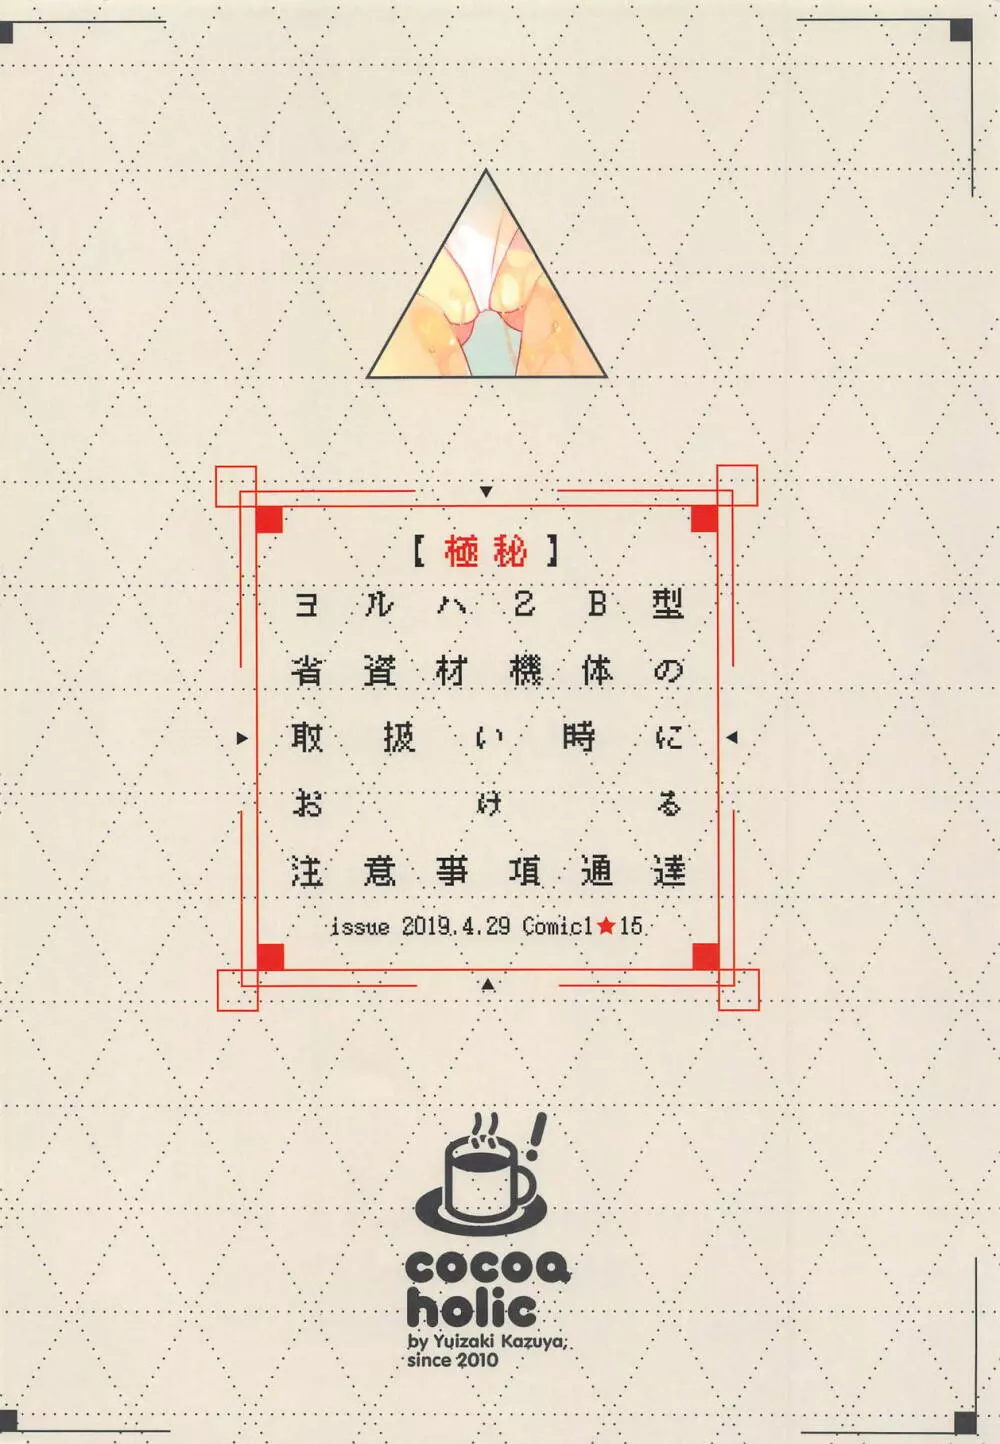 【極秘】
ヨルハ2B型
省資材機体の
取扱い時に
おける
注意事項通達
issue 2019.4.29 Comic1★15
cocoa
holic
by Yuizaki Kazuya,
since 2010